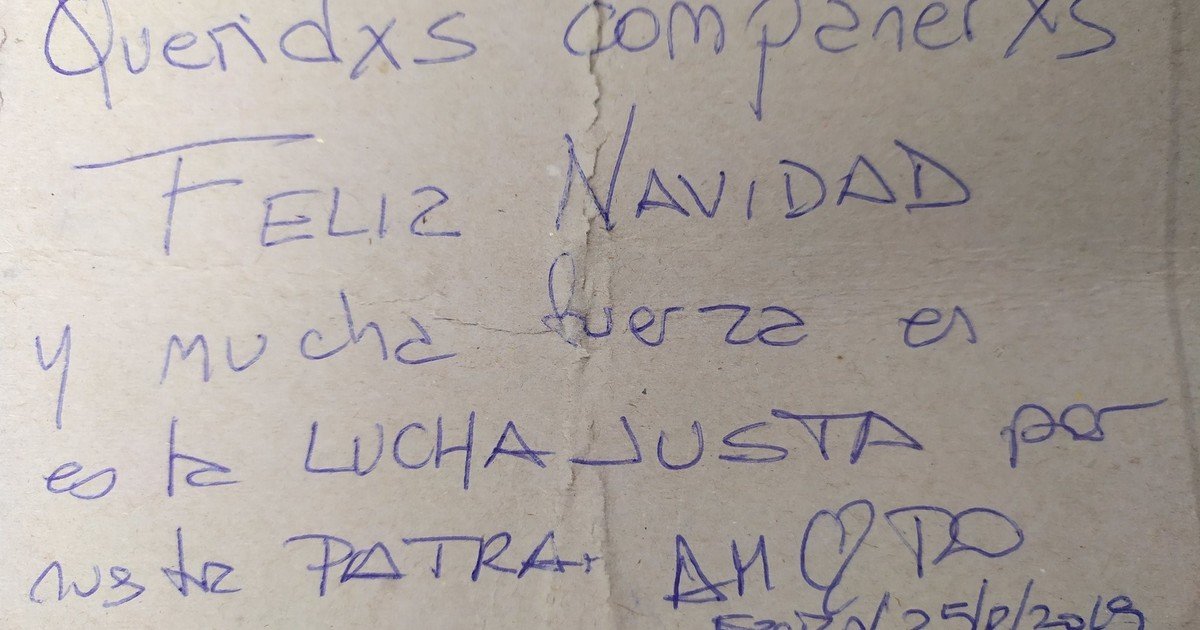 Queridxs compañerxs
FELIZ NAVIDAD
y mucha fuerza es
es ta LUCHA JUSTA por
nusta PATRA